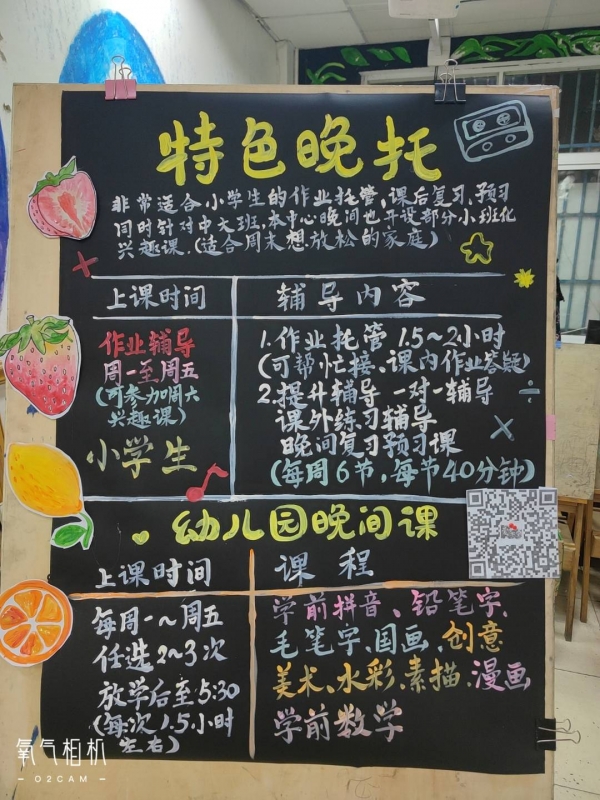 特色晚托
非常适合小学生的作业托管,课后复习、预习
同时针对中文班,本中心晚间也开设部分小班化
兴趣课.(适合周末想放松的家庭)
上课时间
辅导内容
作业辅导
周一至周五
(可参加周六
兴趣课)
小学生
1.作业托管 1.5~2小时
(可帮忙接、课内作业答疑)
2.提升辅导 一对一辅导
课外练习辅导
晚间复习预习课
(每周6节,每节40分钟)
幼儿园晚间课
上课时间
课程
每周一~周五
任选2~3次
放学后至5:30
(每次1.5小时
左右)
学前拼音、铅笔字、
毛笔字、国画、创意
美术、水彩、素描、漫画
学前数学
氧气相机
- O2CAM -